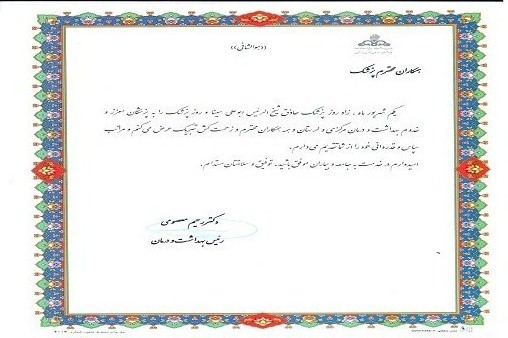 ((هوالشافی))
همکاران محترم پزشک
یکم شهریور ماه ، زاد روز پزشک حاذق شیخ الرئیس ابوعلی سینا و روز پزشک را به پزشکان معزز و
خدوم بهداشت و درمان مرکزی و لرستان و همه همکاران محترم و زحمت کش تبریک عرض می کنم و مراتب
سپاس و قدردانی خود را از شما تقدیم می دارم.
امیدوارم در خدمت به جامعه و بیماران موفق باشید. توفیق و سلامتتان مستدام.
دکتر رحیم معصومی
رئیس بهداشت و درمان